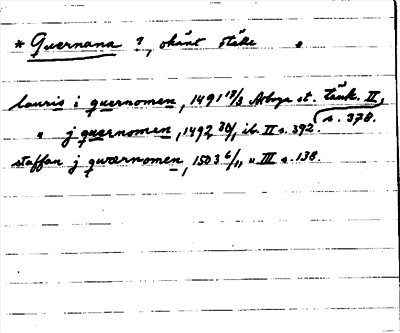 * Quernana ?, okänt ställe "
lauris i quernomen, 1491 19/3 Arboga st. tänk. II,
s. 378.
" j quernomen, 1492 30/1, ib. II s. 392.
staffan j qwærnomen, 1503 6/11, " III s. 138